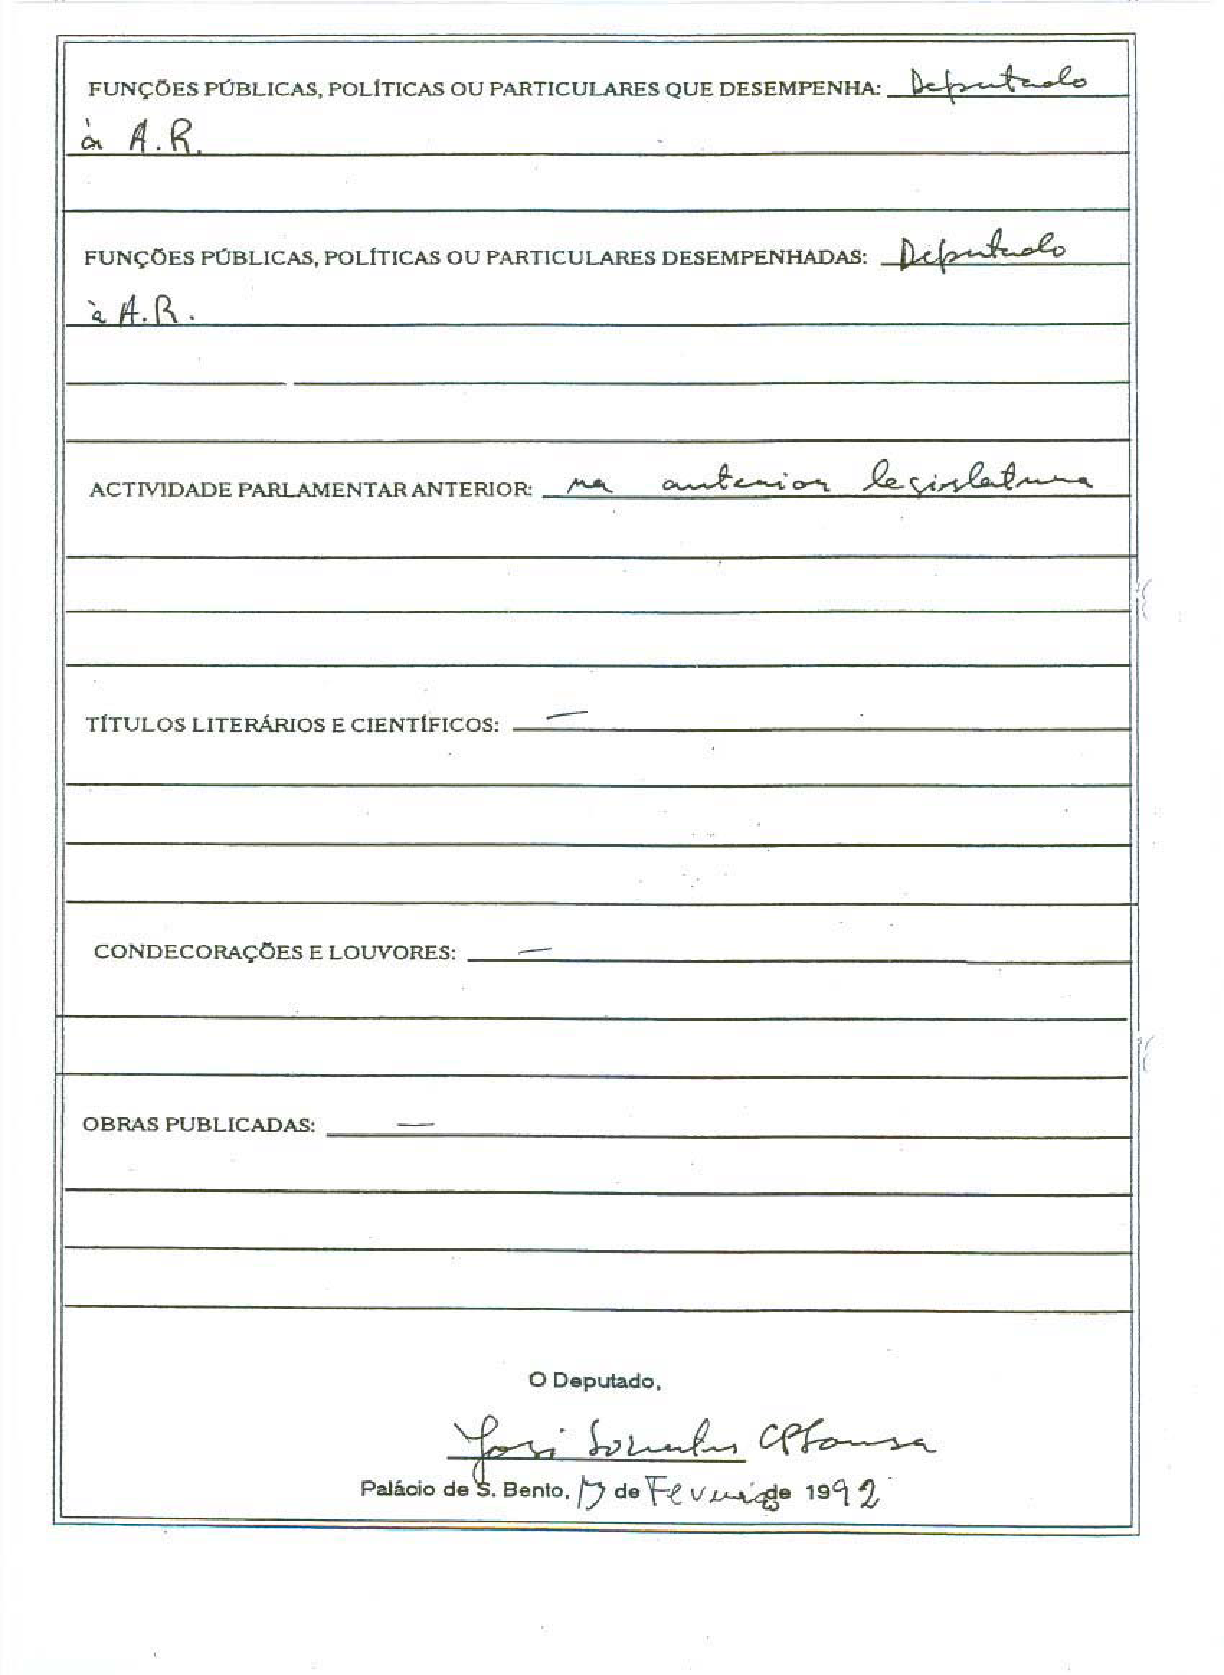 FUNÇÕES PÚBLICAS, POLÍTICAS OU PARTICULARES QUE DESEMPENHA: Deputado
à A.R.
FUNÇÕES PÚBLICAS, POLÍTICAS OU PARTICULARES DESEMPENHADAS: Deputado
à A.R.
ACTIVIDADE PARLAMENTAR ANTERIOR: na anterior legislatura
TÍTULOS LITERÁRIOS E CIENTÍFICOS: —
CONDECORAÇÕES E LOUVORES: —
OBRAS PUBLICADAS: —
O Deputado,
José
Palácio de S. Bento, 17 de Fevereiro de 1992